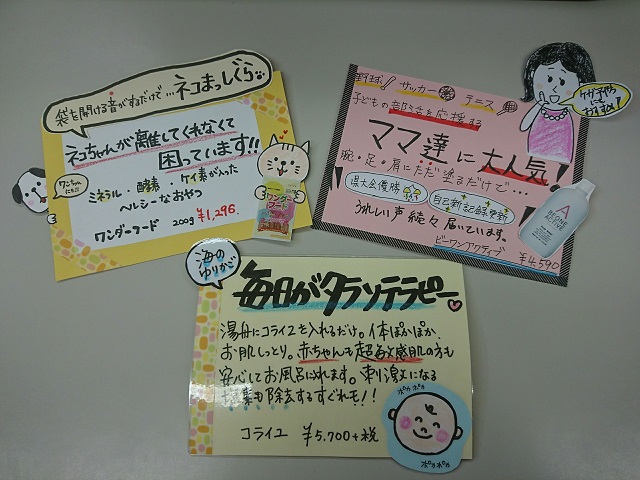 袋を開ける音がするだけで…ネコまっしぐら
ネコちゃんが離してくれなくて
困っています!!
ワンちゃんにも◎
ミネラル・酵素・ケイ素が入った
ヘルシーなおやつ
ワンダーフード 200g ¥1,296.
ワンダー
フード
野球! サッカー テニス
子どもの部活を応援する
ママ達に大人気!
腕・足・肩にただ塗るだけで…
県大会優勝
自己新記録更新
うれしい声続々届いています。
ビーワンアクティブ
¥4,590
ケガ予防
にも
おすすめ!
A
海の
ゆりかご
毎日がタラソテラピー
湯舟にコライユを入れるだけ。体ぽかぽか、
お肌しっとり。赤ちゃんも超敏感肌の方も
安心してお風呂に入れます。刺激になる
素も除去するすぐれモノ!!
コライユ ¥5,700+税
ポカポカ
ポカポカ